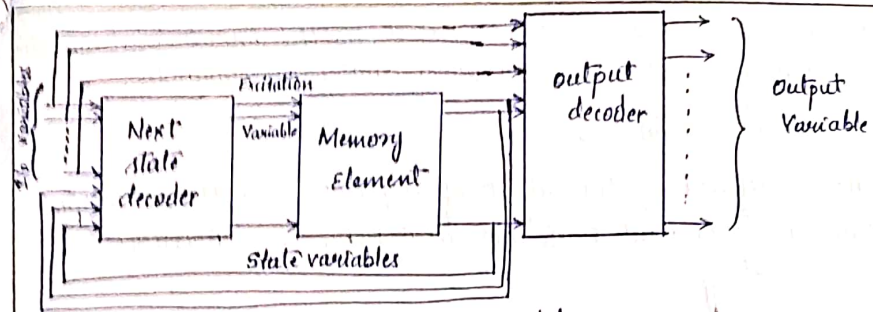 I/p variables
Next
state
decoder
Excitation
Variable
Memory
Element
State variables
output
decoder
Output
Variable